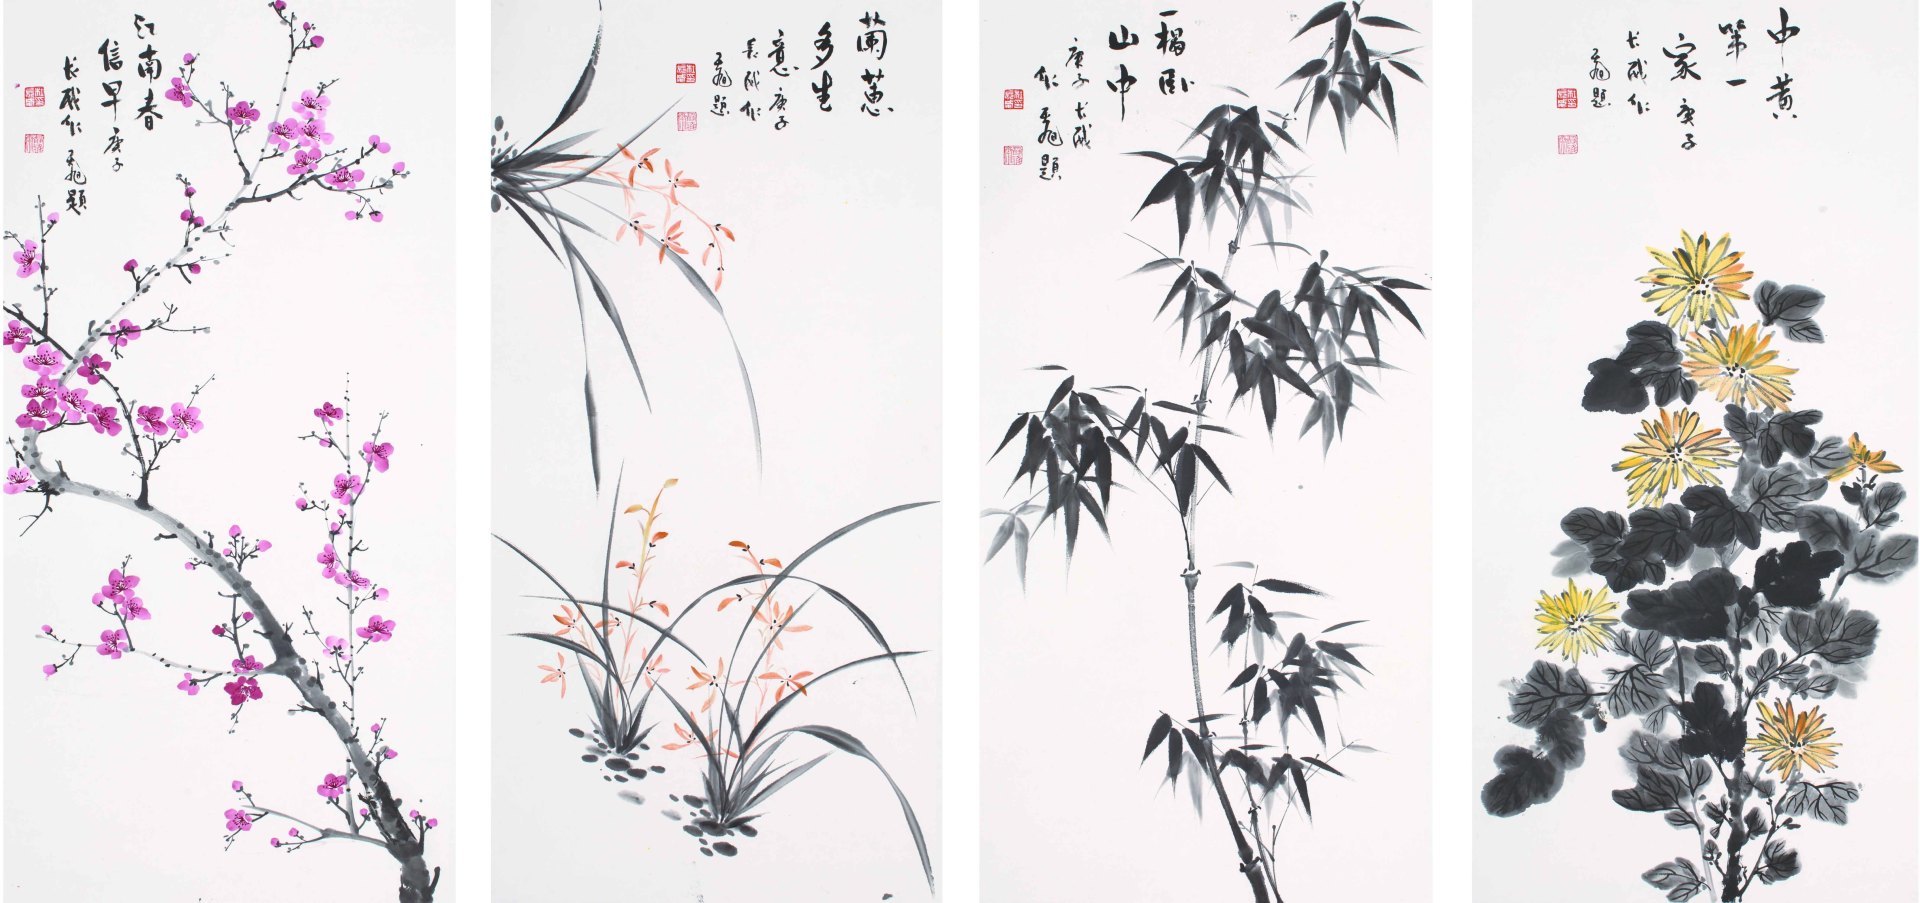 江南春
信早 庚子
长成作 題
蘭蕙
多生
意 庚子
长成作
題
一榻卧
山中
庚子 长成
作 題
中黄
第一
家 庚子
长成作
題